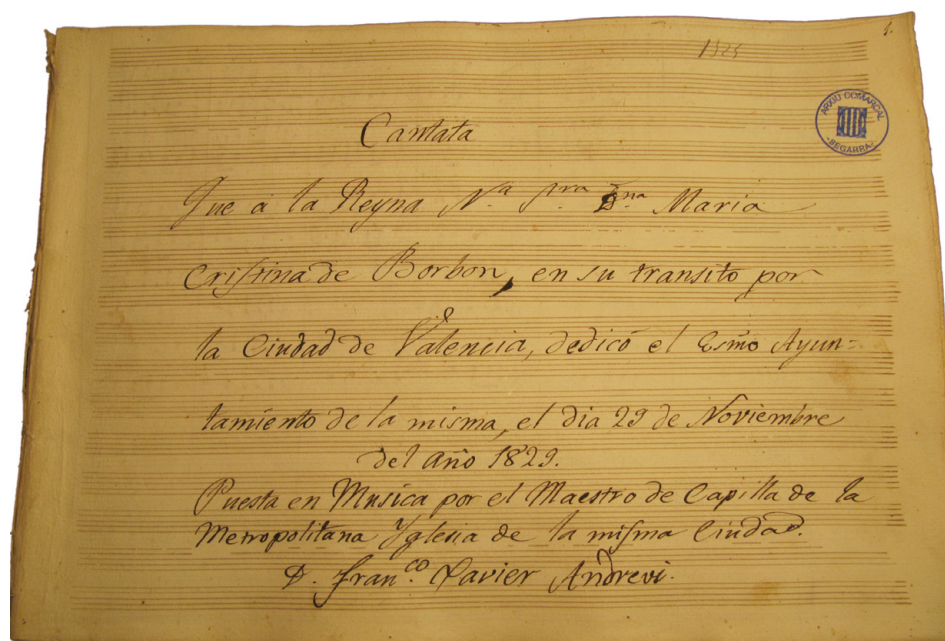 1.
ARXIU COMARCAL
-SEGARRA-
Cantata
Que á la Reyna N.ª Sra Dna Maria
Cristina de Borbon, en su transito por
la Ciudad de Valencia, dedicó el Esmo Ayun=
tamiento de la misma, el dia 29 de Noviembre
del año 1829.
Puesta en Musica por el Maestro de Capilla de la
Metropolitana Yglesia de la misma Ciudad.
D. Fran.co Xavier Andrevi.